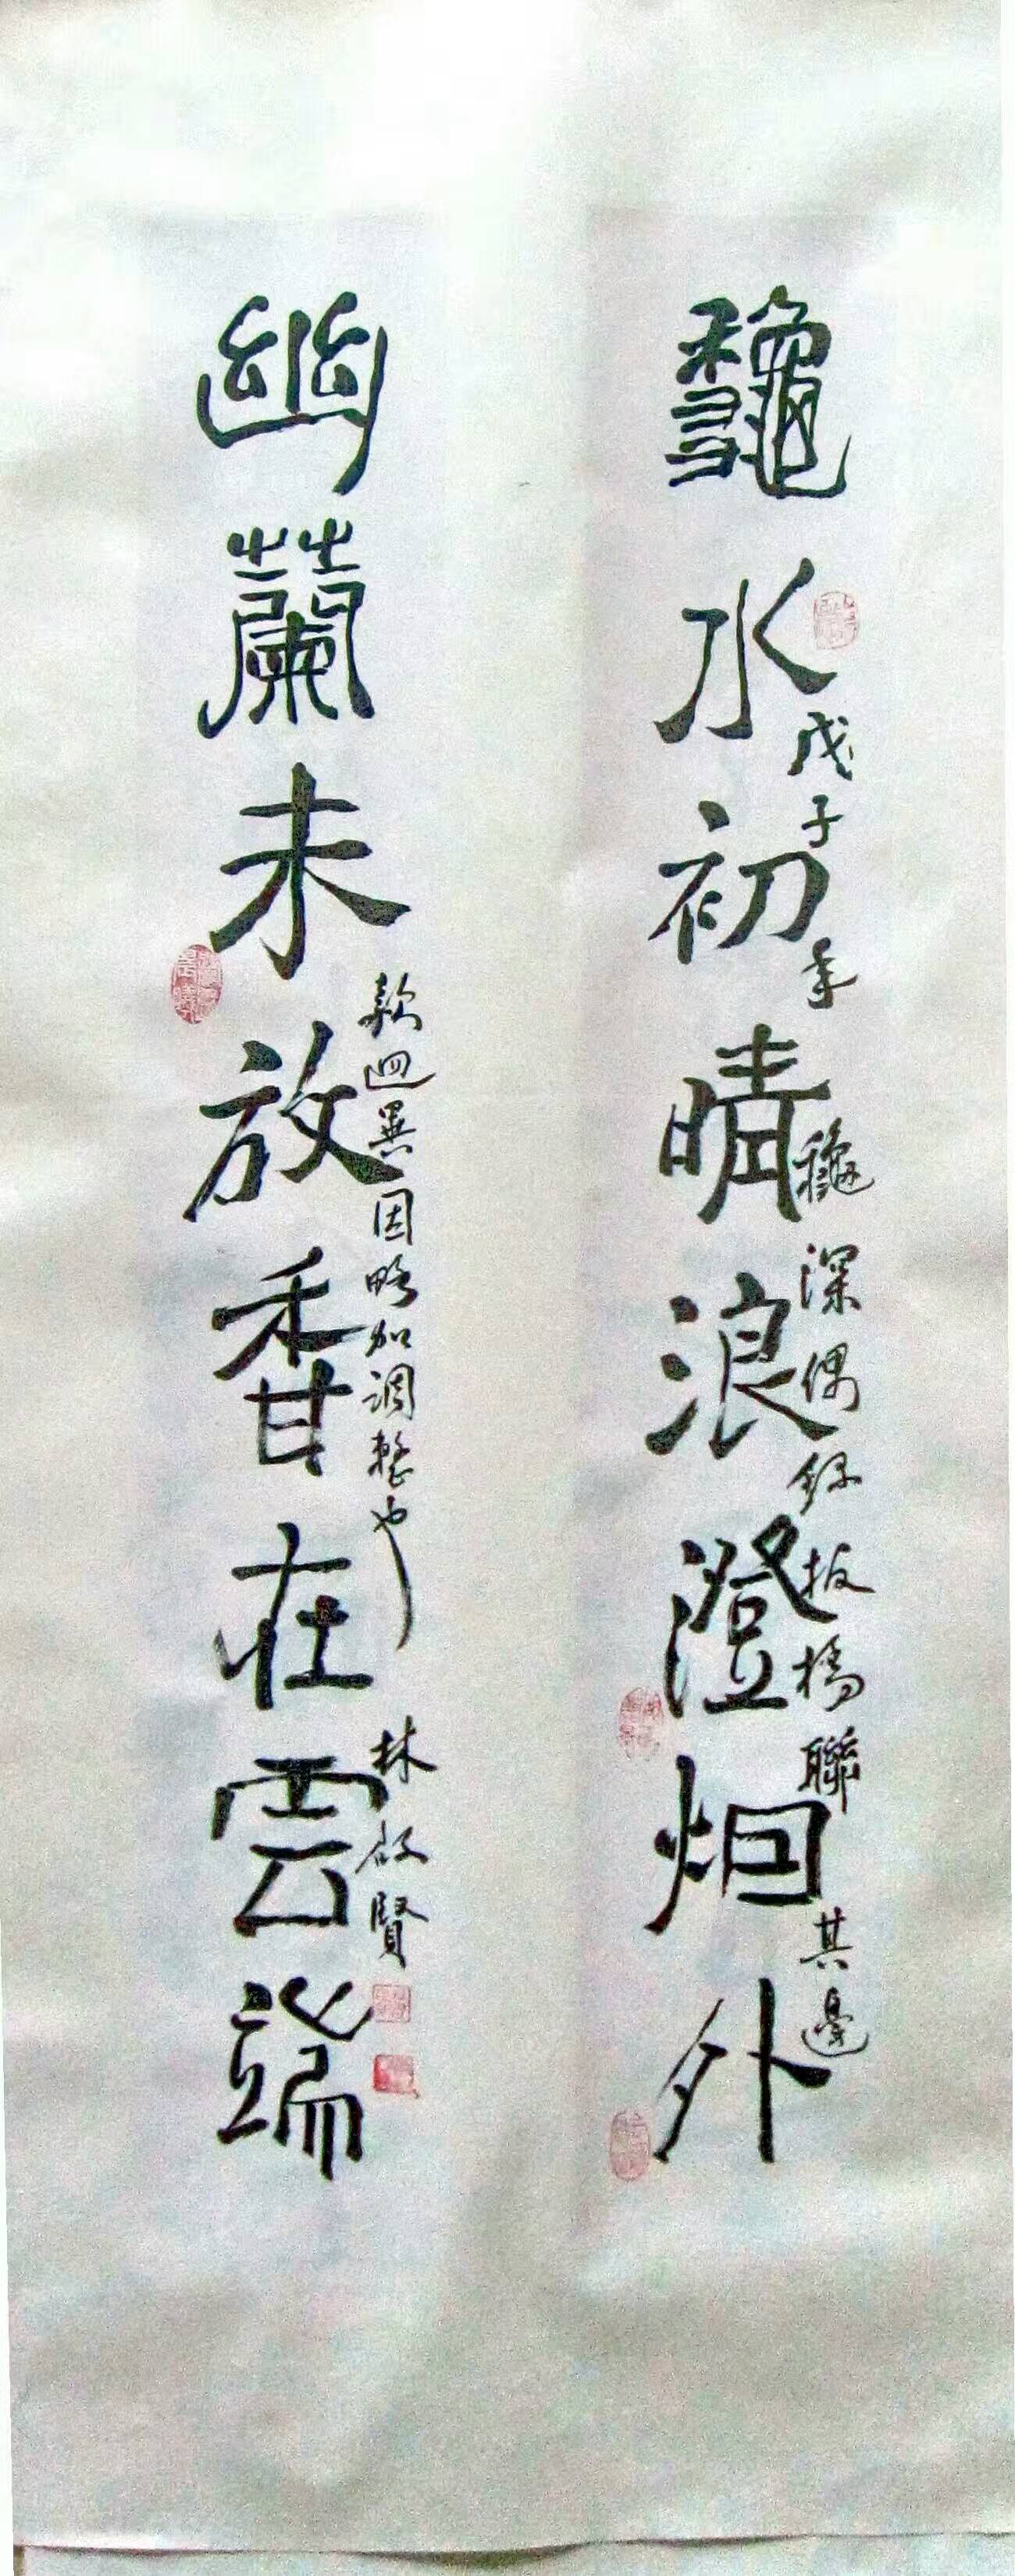 龝水初晴浪澄烟外
戊子年龝深偶錄板橋聯其邊
幽蘭未放香在雲端
款迥異因略加調整也
林啟賢